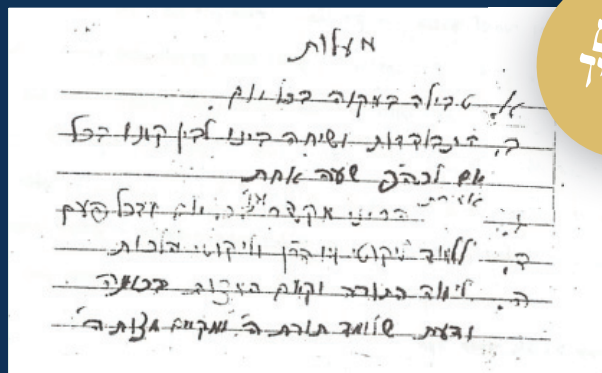 מעלות
א. טבילה במקוה בכל יום
ב. התבודדות ושיחה בינו לבין קונו בכל
יום לכה"פ שעה אחת
ג. אמירת הריני מקשר יום ובכל פעם
ד. ללמוד ליקוטי מוהר"ן וליקוטי הלכות
ה. לימוד התורה וקיום המצוות בכוונה
ודעת שלומד תורת ה' ומקיים מצות ה'